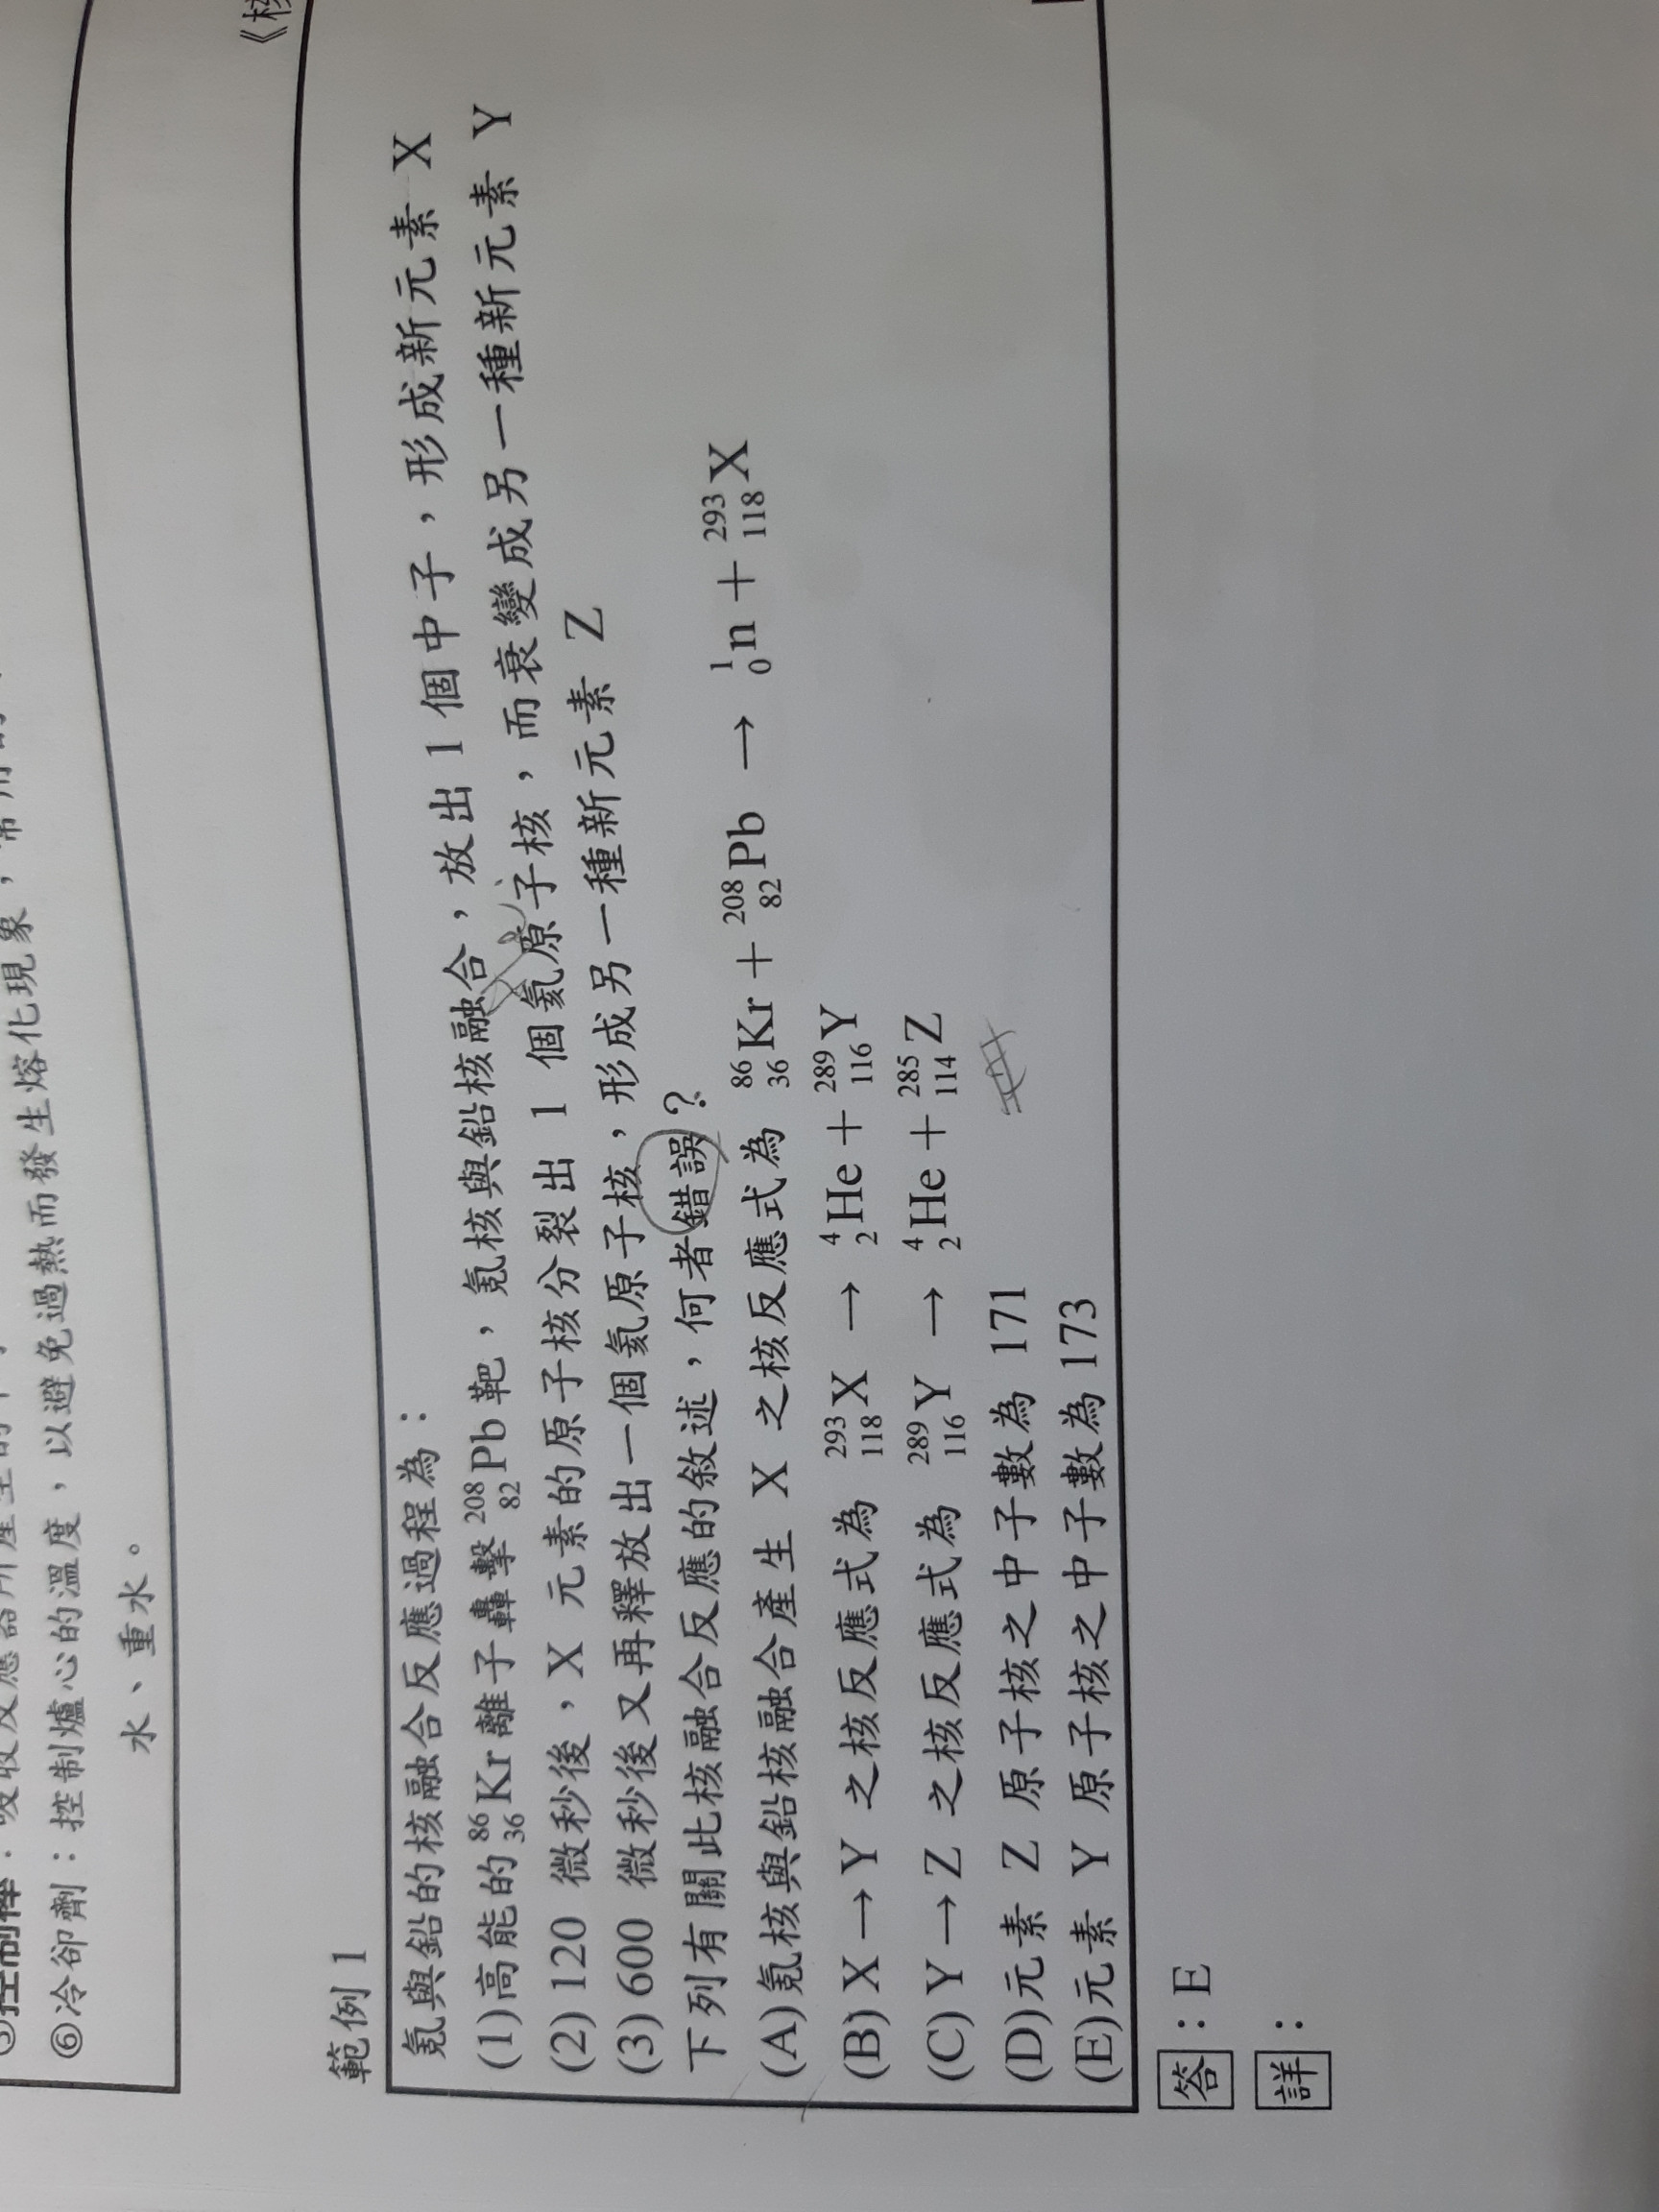 ⑥冷卻劑：控制爐心的溫度，以避免過熱而發生熔化現象，常用的
水、重水。
範例 1
氪與鉛的核融合反應過程為：
(1)高能的 ⁸⁶₃₆Kr 離子轟擊 ²⁰⁸₈₂Pb 靶，氪核與鉛核融合，放出 1 個中子，形成新元素 X
(2) 120 微秒後，X 元素的原子核分裂出 1 個氦原子核，而衰變成另一種新元素 Y
(3) 600 微秒後又再釋放出一個氦原子核，形成另一種新元素 Z
下列有關此核融合反應的敘述，何者錯誤？
(A)氪核與鉛核融合產生 X 之核反應式為 ⁸⁶₃₆Kr + ²⁰⁸₈₂Pb → ¹₀n + ²⁹³₁₁₈X
(B) X → Y 之核反應式為 ²⁹³₁₁₈X → ⁴₂He + ²⁸⁹₁₁₆Y
(C) Y → Z 之核反應式為 ²⁸⁹₁₁₆Y → ⁴₂He + ²⁸⁵₁₁₄Z
(D)元素 Z 原子核之中子數為 171
(E)元素 Y 原子核之中子數為 173
答：E
詳：